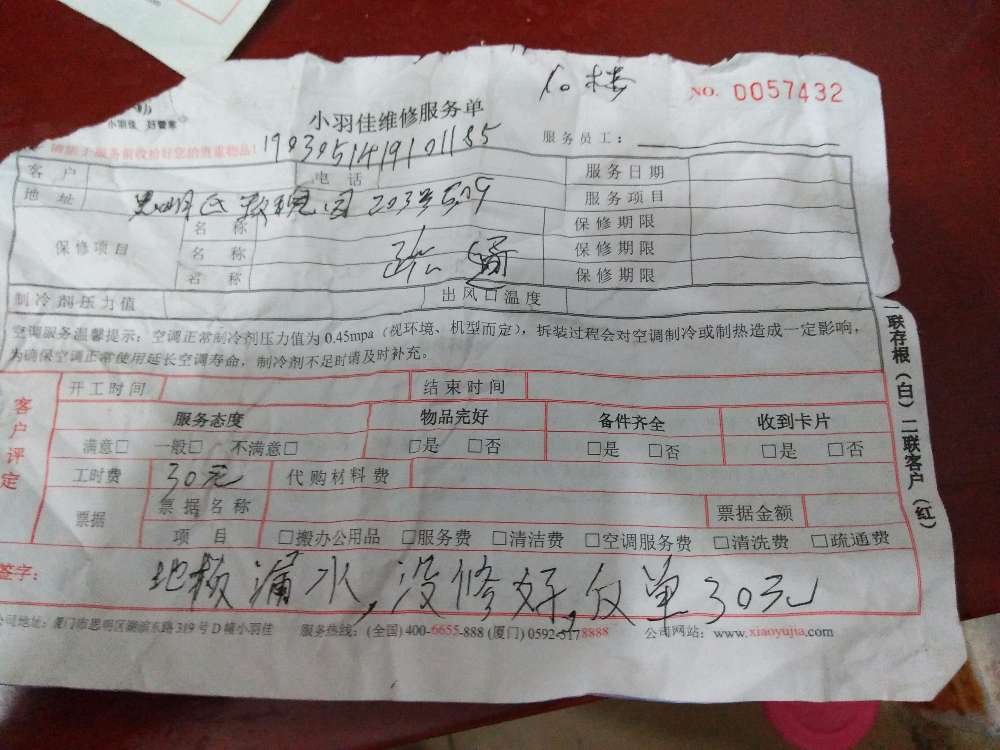 小羽佳 好管家
小羽佳维修服务单
NO. 0057432
服务员工：
1903051419101185
客户 电话 服务日期
地址 思明区 203号 服务项目
保修项目 名称 保修期限
名称 保修期限
名称 保修期限
制冷剂压力值 出风口温度
空调服务温馨提示：空调正常制冷剂压力值为 0.45mpa（视环境、机型而定），拆装过程会对空调制冷或制热造成一定影响，
为确保空调正常使用延长空调寿命，制冷剂不足时请及时补充。
客户评定
开工时间 结束时间
服务态度 物品完好 备件齐全 收到卡片
满意□ 一般□ 不满意□ □是 □否 □是 □否 □是 □否
工时费 30元 代购材料费
票据 票据名称 票据金额
项目 □搬办公用品 □服务费 □清洁费 □空调服务费 □清洗费 □疏通费
签字： 地板漏水，没修好，仅单30元
公司地址：厦门市思明区湖滨东路 319 号 D 幢小羽佳 服务热线：(全国) 400-6655-888 (厦门) 0592-5178888 公司网站：www.xiaoyujia.com
一联存根（白）二联客户（红）